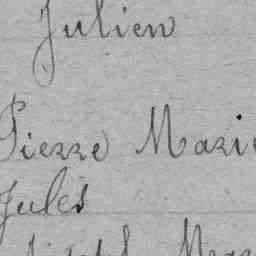 Julien
Pierre Marie
Jules